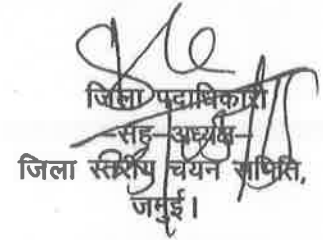 जिला पदाधिकारी
-सह-अध्यक्ष-
जिला स्तरीय चयन समिति,
जमुई।